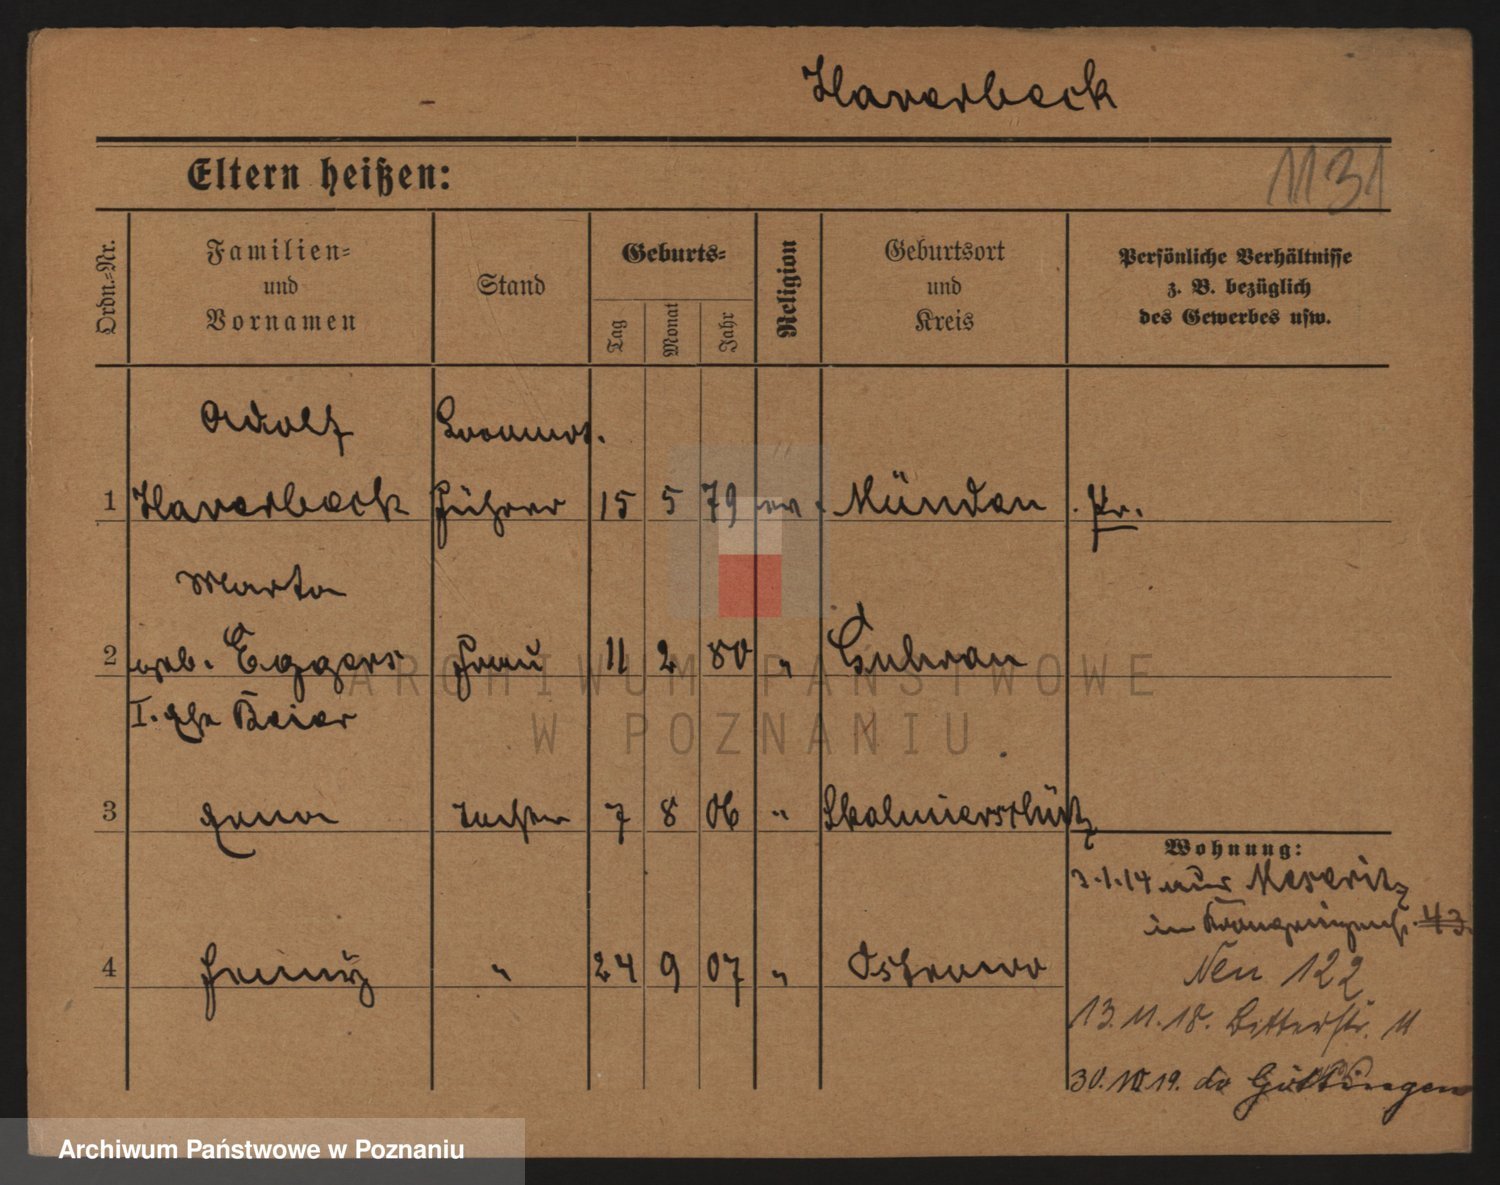 Haverbeck
Eltern heißen:
1131
Ordn.-Nr.
Familien-
und
Vornamen
Stand
Geburts-
Tag
Monat
Jahr
Religion
Geburtsort
und
Kreis
Persönliche Verhältnisse
z. B. bezüglich
des Gewerbes usw.
Adolf
Locomot.
1 Haverbeck Führer 15 5 79 ev. Münden Pr.
Marta
2 geb. Eggers Frau 11 2 80 " Guhrau
I. Ehe Beier
3 Erna Tochter 7 8 06 " Skalmierschütz
Wohnung:
3.1.14 aus Meseritz
in 43.
4 24 9 07 " Ostrowo
Neu 122
13.11.18. Bitterstr. 11
30.10.19. do Göttingen
ARCHIWUM PAŃSTWOWE
W POZNANIU
Archiwum Państwowe w Poznaniu